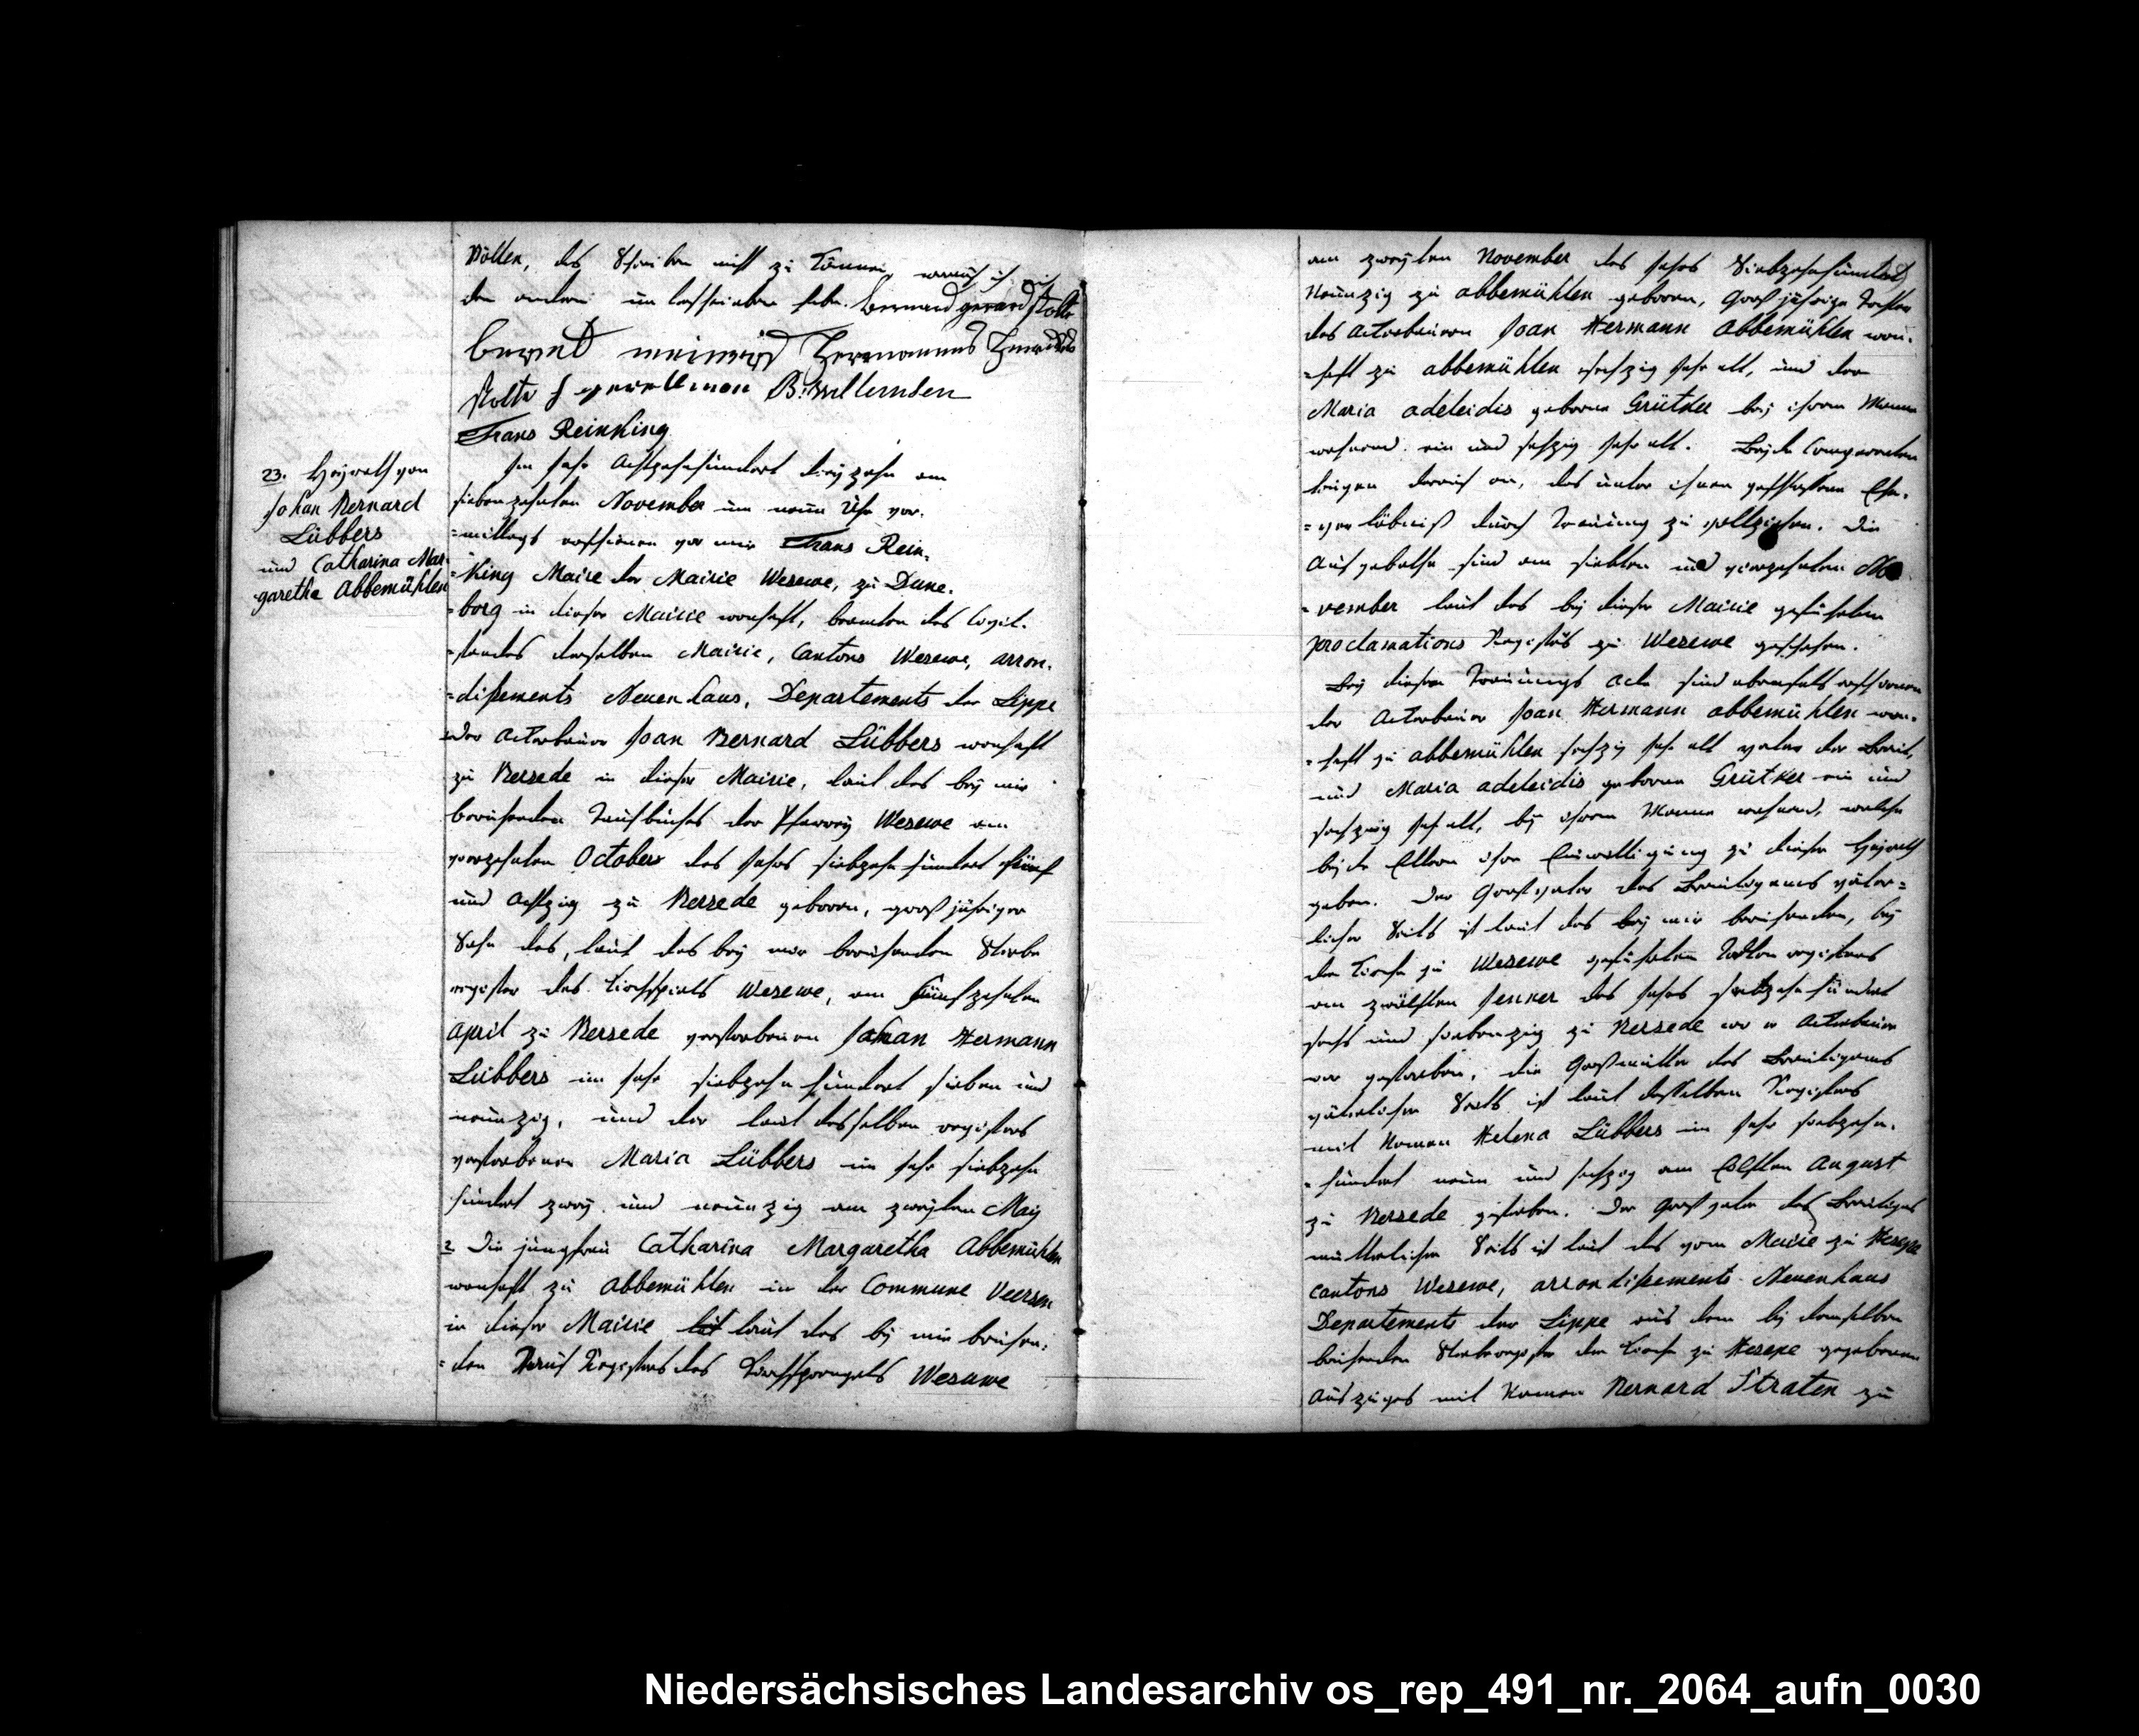 Rölker, des Schreiben nicht zu können, worauf ich mit
den andern unterschrieben habe. Bernard gerard Stolte
bernd meinerd Hermannes
Stolte
Frans Reinking
23. Heyrath von
Johan Bernard
Lübbers
und Catharina Mar-
garetha Abbemühlen
Im Jahr Achtzehnhundert dreyzehn am
siebenzehnten November um neun Uhr vor-
=mittags erschienen vor mir Frans Rein-
=King Maire der Mairie Wesuwe, zu Dune-
=borg in dieser Mairie wonhaft, beamten des Civil-
=standes derselben Mairie, Cantons Wesuwe, arron-
=dißements Neuenhaus, Departements der Lippe
der Ackerbauer Joan Bernard Lübbers wonhaft
zu Versede in dieser Mairie, laut des bey mir
beruhenden Taufbuches der Pfarrey Wesuwe am
vierzehnten October des Jahrs siebzehnhundert fünf
und Achtzig zu Versede geboren, großjähriger
Sohn des, laut des bey mir beruhenden Sterbe
register des Kirchspiels Wesuwe, am fünfzehnten
April zu Versede verstorbenen Johan Hermann
Lübbers im Jahr siebzehnhundert sieben und
neunzig, und der laut desselben registers
verstorbenen Maria Lübbers im Jahr siebzehn
hundert zwey und neunzig am zweyten May
2 Die jungfrau Catharina Margaretha Abbemühlen
wonhaft zu Abbemühlen in der Commune Veersen
in dieser Mairie laut des by mir beruhen-
=den Tauf Registers des Kirchsprengels Wesuwe
am zweyten November des Jahrs Siebzehnhundert
Neunzig zu abbemühlen geboren, Großjährige Tochter
des Ackerbauern Joan Hermann Abbemühlen won-
=haft zu abbemühlen sechzig Jahr alt, und der
Maria adeleidis geborne Grütker bey ihrem Manne
wohnend ein und sechzig Jahr alt. Beyde Comparenten
trugen darauf an, das unter ihnen geschlossene Ehe-
=verlöbniß durch Trauung zu vollziehen. Die
Aufgebothe sind am siebten und vierzehnten No
=vember laut des bey dieser Mairie geführten
proclamations Registers zu Wesuwe geschehen.
Bey dieser Trauungs Acte sind ebenfals erschienen
der Ackerbauer Joan Hermann abbemühlen won-
=haft zu abbemühlen sechzig Jahr alt vater der Braut,
und Maria adeleidis geborne Grütker ein und
sechzig Jahr alt, by ihrem Manne wohnend, welche
beyde Eltern ihre Einwilligung zu dieser Heyrath
geben. Der Großvater des Bräutigams väter=
licher Seits ist laut des bey mir beruhenden, bey
der Kirche zu Wesuwe geführten Todten registers
am zwölften Jenner des Jahrs siebzehnhundert
sechs und siebenzig zu Versede wo er Ackerbauer
war gestorben, die Großmutter des Bräutigams
väterlicher Seits ist laut desselben Registers
mit Namen Helena Lübbers im Jahr siebzehn-
=hundert neun und sechzig am Eilften August
zu Versede gestorben. Der Großvater des Bräutigams
mütterlicher Seits ist laut des vom Maire zu Hesepe
cantons Wesuwe, arrondißements Neuenhaus
Departements der Lippe aus dem by demselben
beruhenden Sterberegister der Kirche zu Hesepe gegebenen
Auszuges mit Namen Bernard Straten zu
Niedersächsisches Landesarchiv os_rep_491_nr._2064_aufn_0030